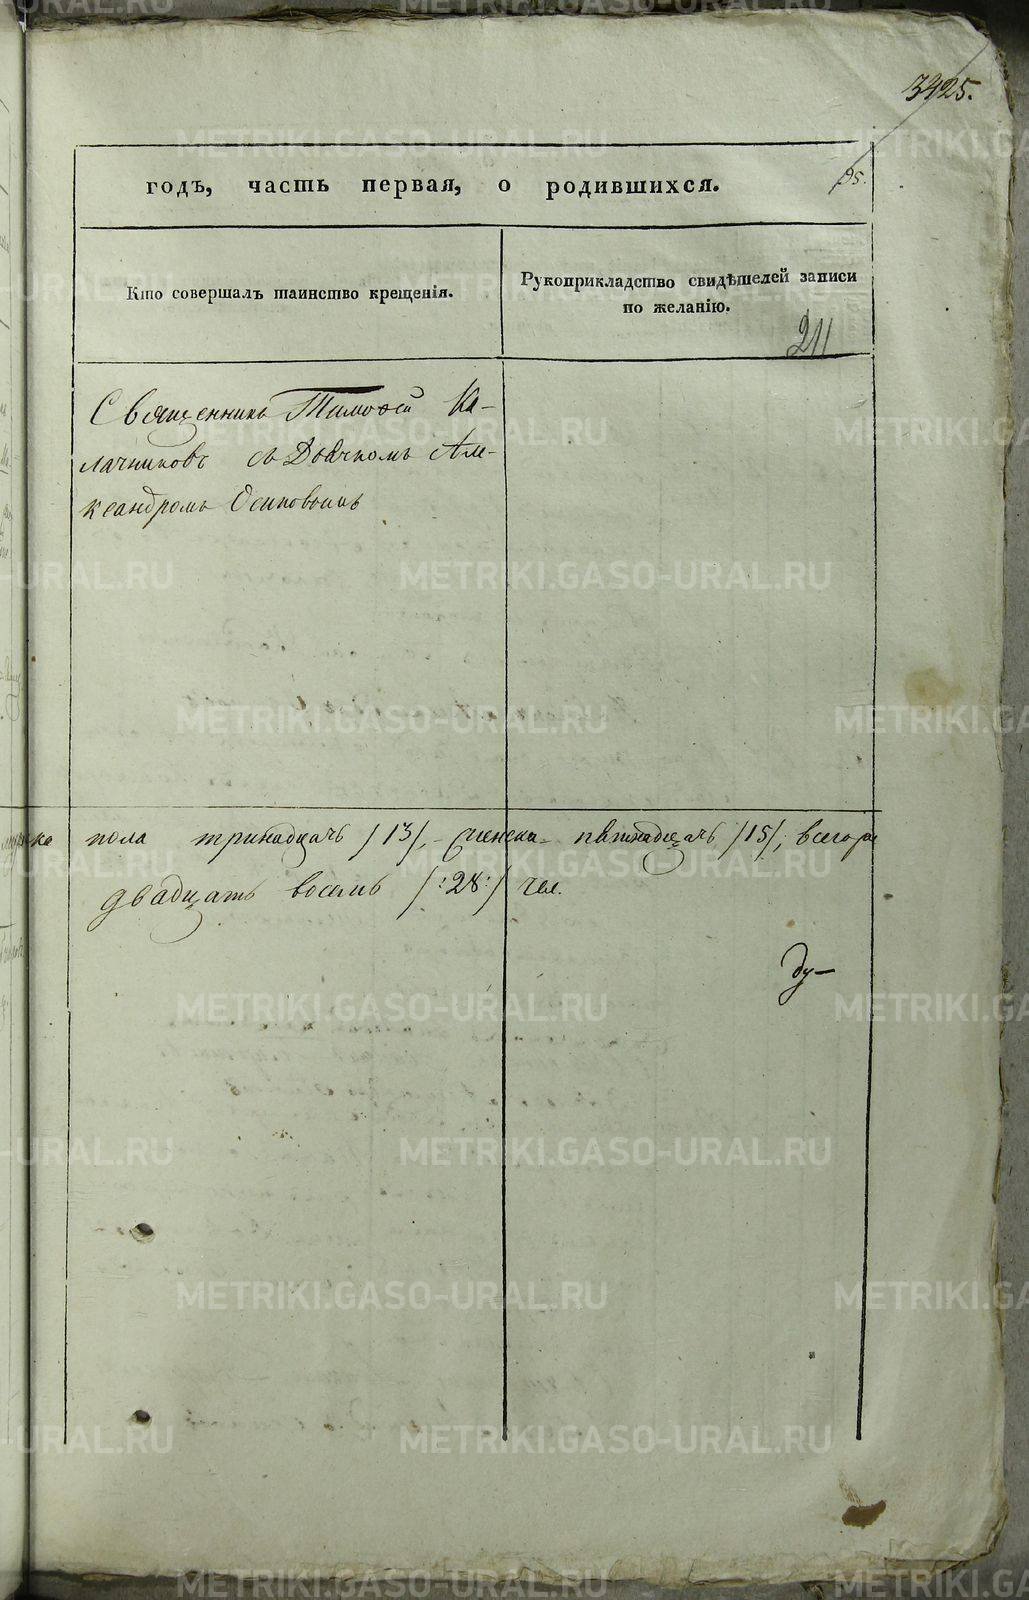 3425.
годъ, часть первая, о родившихся.
95.
Кто совершалъ таинство крещенія.
Рукоприкладство свидѣтелей записи
по желанію.
211
Священникъ Тимоѳей Ка-
лачниковъ съ Дьячкомъ Але-
ксандромъ Осиповымъ
пола тринадцать /13/, женска пятнадцать /15/, всего
двадцать восемь /:28:/ чел.
METRIKI.GASO-URAL.RU